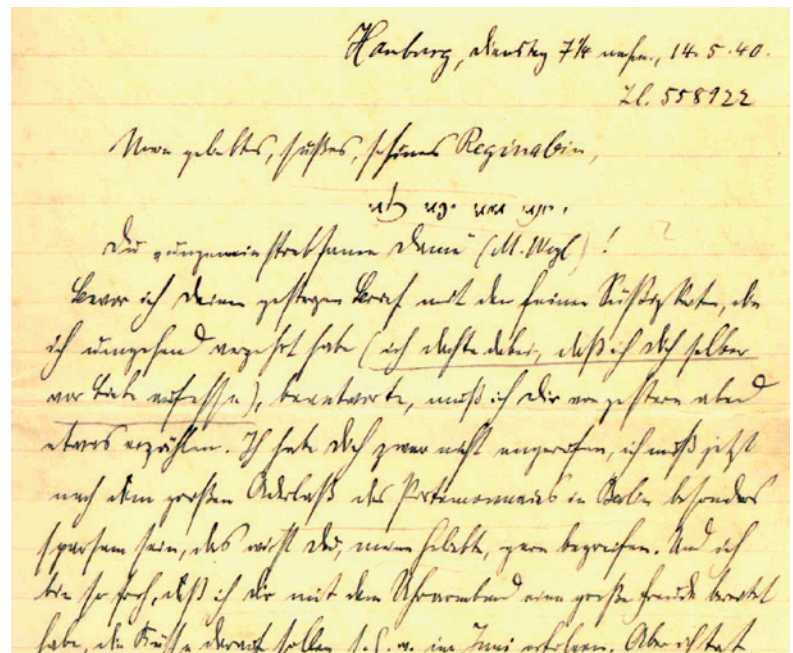 Hamburg, Dienstag 7¼ nachm., 14.5.40.
Tl. 558922
Mein geliebtes, süßes, schönes Reginalein,
Du „ungemein strebsame Dame" (M. Wgl)!
Bevor ich Deinen gestrigen Brief mit den feinen Süßigkeiten, die
ich umgehend verzehrt habe (ich dachte dabei, daß ich Dich selber
vor Liebe aufesse), beantworte, muß ich Dir von gestern abend
etwas erzählen. Ich habe Dich zwar nicht angerufen, ich muß jetzt
nach dem großen Aderlaß des Portemonnaies in Berlin besonders
sparsam sein, das wirst Du, meine Geliebte, gern begreifen. Und ich
bin so froh, daß ich Dir mit dem Uhrarmband eine große Freude bereitet
habe, die Küsse darauf sollen s. G. w. im Juni erfolgen. Aber ich tat